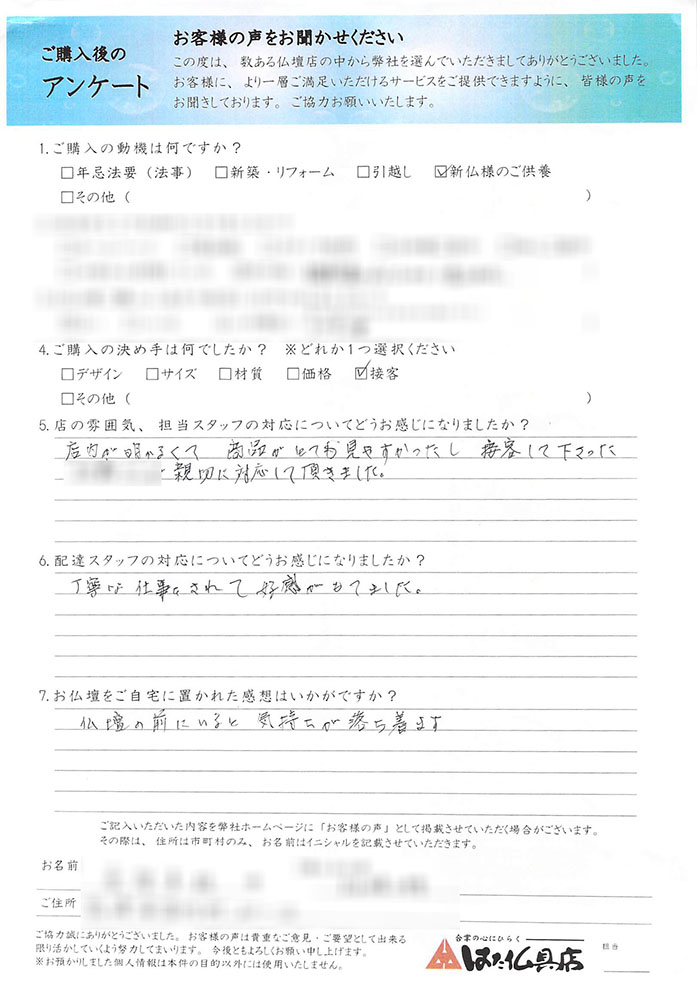 ご購入後の
アンケート
お客様の声をお聞かせください
この度は、数ある仏壇店の中から弊社を選んでいただきましてありがとうございました。
お客様に、より一層ご満足いただけるサービスをご提供できますように、皆様の声を
お聞きしております。ご協力お願いいたします。
1.ご購入の動機は何ですか？
□年忌法要（法事） □新築・リフォーム □引越し ☑新仏様のご供養
□その他（ ）
4.ご購入の決め手は何でしたか？ ※どれか1つ選択ください
□デザイン □サイズ □材質 □価格 ☑接客
□その他（ ）
5.店の雰囲気、担当スタッフの対応についてどうお感じになりましたか？
店内が明かるくて 商品がとても見やすかったし 接客して下さった
親切に対応して頂きました。
6.配達スタッフの対応についてどうお感じになりましたか？
丁寧な仕事をされて好感がもてました。
7.お仏壇をご自宅に置かれた感想はいかがですか？
仏壇の前にいると気持ちが落ち着ます
ご記入いただいた内容を弊社ホームページに「お客様の声」として掲載させていただく場合がございます。
その際は、住所は市町村のみ、お名前はイニシャルを記載させていただきます。
お名前
ご住所
ご協力誠にありがとうございました。お客様の声は貴重なご意見・ご要望として出来る
限り活かしていくよう努力してまいります。今後ともよろしくお願い申し上げます。
※お預かりしました個人情報は本件の目的以外には使用いたしません。
合掌の心にひらく
はた仏具店
担当